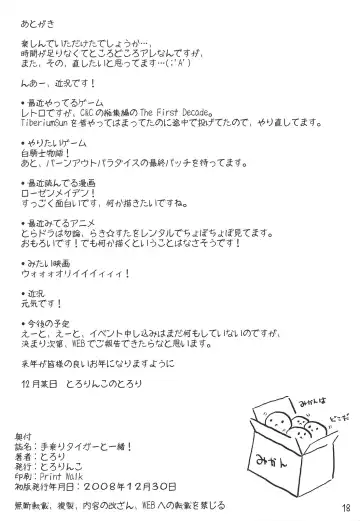 あとがき
楽しんでいただけたでしょうか…、
時間が足りなくてところどころアレなんですが、
また、その、直したいと思ってます…(;'A')
んあー、近況です！
•最近やってるゲーム
レトロですが、C&Cの総集編のThe First Decade。
TiberiumSunを昔やってはまってたのに途中で投げてたので、やり直してます。
•やりたいゲーム
白騎士物語！
あと、バーンアウトパラダイスの最終パッチを待ってます。
•最近読んでる漫画
ローゼンメイデン！
すっごく面白いです、何か描きたいですね。
•最近みてるアニメ
とらドラは勿論、らき☆すたをレンタルでちょぼちょぼ見てます。
おもろいです！でも何か描くということはなさそうです！
•みたい映画
ウォォォオリイイイィィィ！
•近況
元気です！
•今後の予定
えーと、えーと、イベント申し込みはまだ何もしていないのですが、
決まり次第、WEBでご報告できたらなと思います。
来年が皆様の良いお年になりますように
12月某日　とろりんこのとろり
みかんは
どこだ
みかん
奥付
誌名：手乗りタイガーと一緒！
著者：とろり
発行：とろりんこ
印刷：Print Walk
初版発行年月日：2008年12月30日
無断転載、複製、内容の改ざん、WEBへの転載を禁じる
18